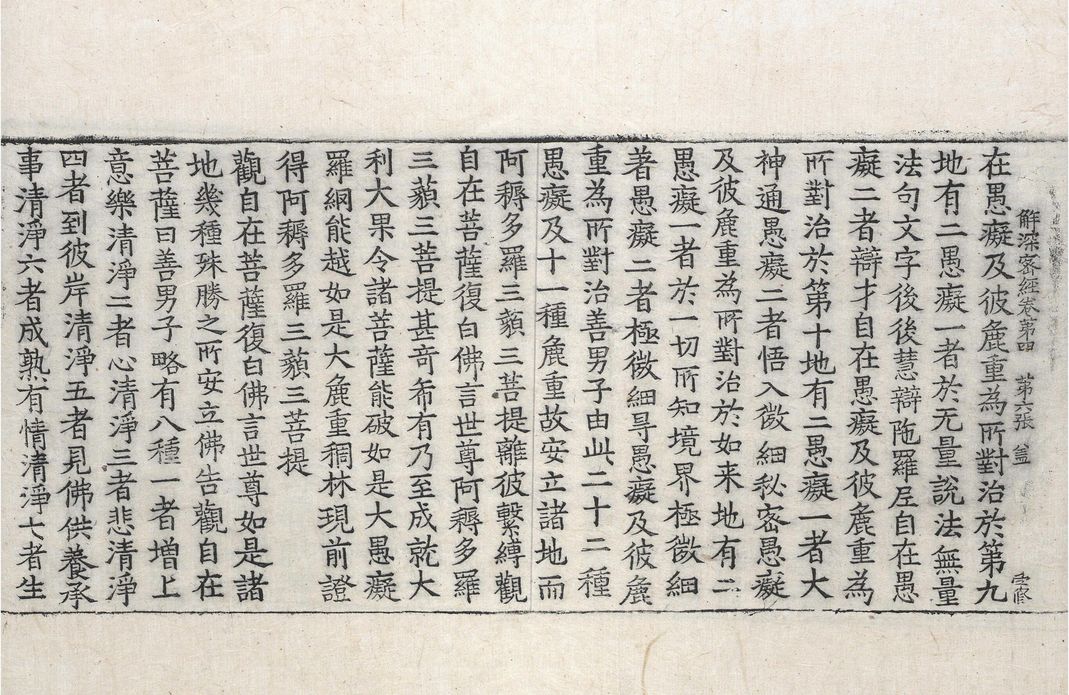 解深密經卷第四　第六張　盖
在愚癡及彼麁重為所對治於第九
地有二愚癡一者於无量說法無量
法句文字後後慧辯陁羅尼自在愚
癡二者辯才自在愚癡及彼麁重為
所對治於第十地有二愚癡一者大
神通愚癡二者悟入微細秘密愚癡
及彼麁重為所對治於如来地有二
愚癡一者於一切所知境界極微細
著愚癡二者極微細导愚癡及彼麁
重為所對治善男子由此二十二種
愚癡及十一種麁重故安立諸地而
阿耨多羅三藐三菩提離彼繫縛觀
自在菩薩復白佛言世尊阿耨多羅
三藐三菩提甚奇希有乃至成就大
利大果令諸菩薩能破如是大愚癡
羅網能越如是大麁重稠林現前證
得阿耨多羅三藐三菩提
觀自在菩薩復白佛言世尊如是諸
地幾種殊勝之所安立佛告觀自在
菩薩曰善男子略有八種一者增上
意樂清淨二者心清淨三者悲清淨
四者到彼岸清淨五者見佛供養承
事清淨六者成熟有情清淨七者生